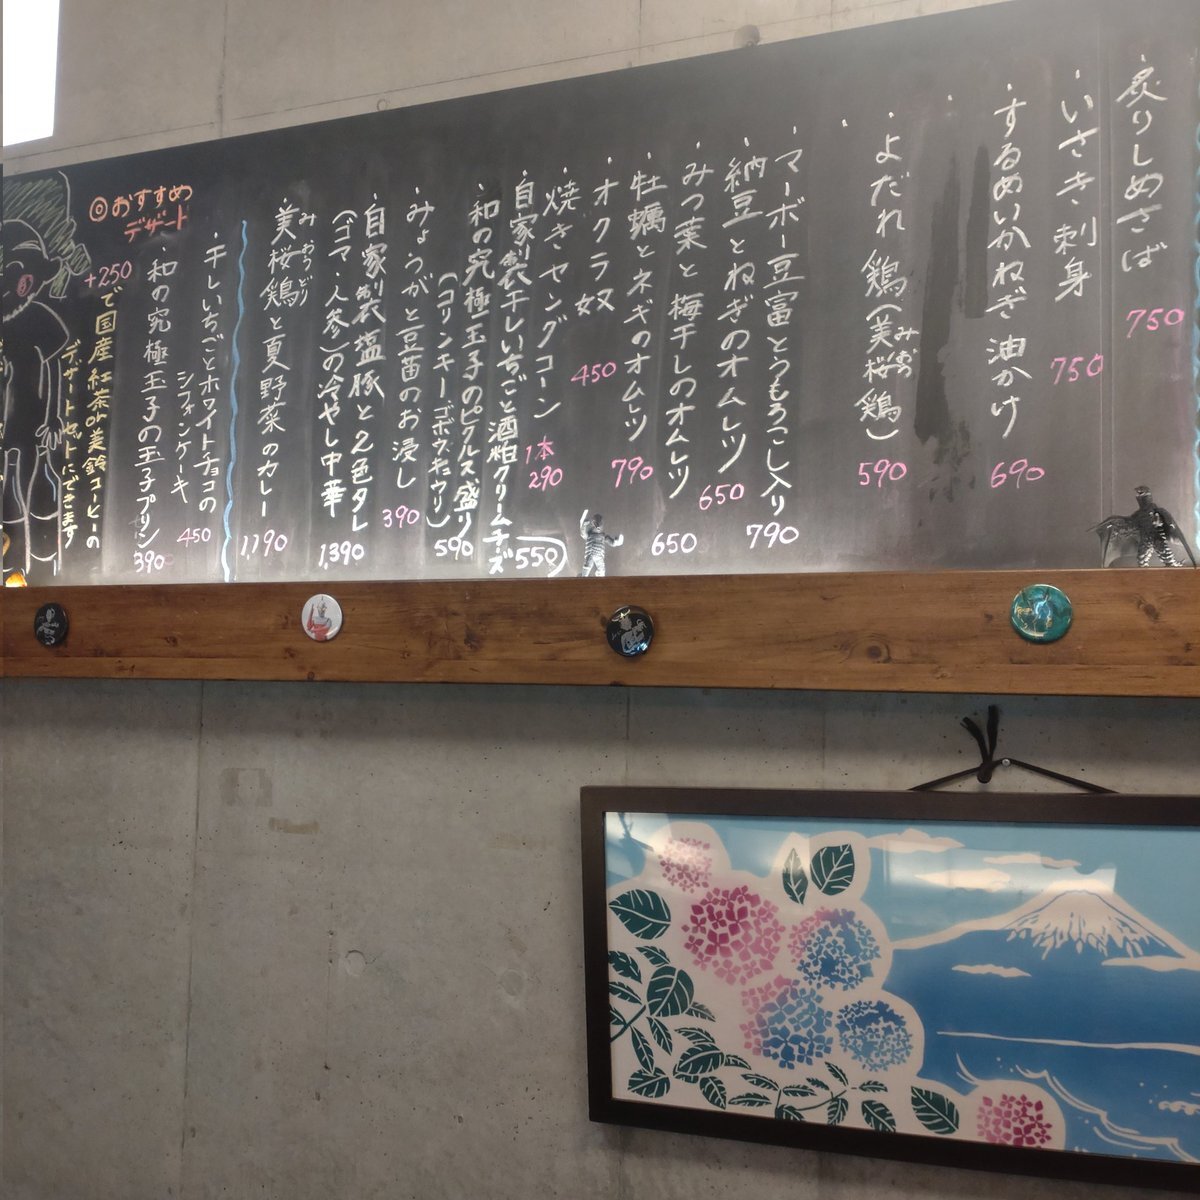 ・炙りしめさば 750
・いさき刺身 750
・するめいかねぎ油かけ 690
・よだれ鶏(美桜鶏) 590
みおう
・マーボー豆富とうもろこし入り 790
・納豆とねぎのオムレツ 650
・みつ葉と梅干しのオムレツ 650
・牡蠣とネギのオムレツ 790
・オクラ奴 450
・焼きヤングコーン 1本 290
・自家製干しいちごと酒粕クリームチーズ 550
・和の究極玉子のピクルス盛り
(コリンキー・ゴボウ・キュウリ) 590
・みょうがと豆苗のお浸し 390
・自家製塩豚と2色タレ
(ゴマ・人参)の冷やし中華 1,390
・美桜鶏と夏野菜のカレー 1,190
みおうどり
・干しいちごとホワイトチョコの
シフォンケーキ 450
◎おすすめ
デザート
・和の究極玉子の玉子プリン 390
+250で国産紅茶or美鈴コーヒーの
デザートセットにできます